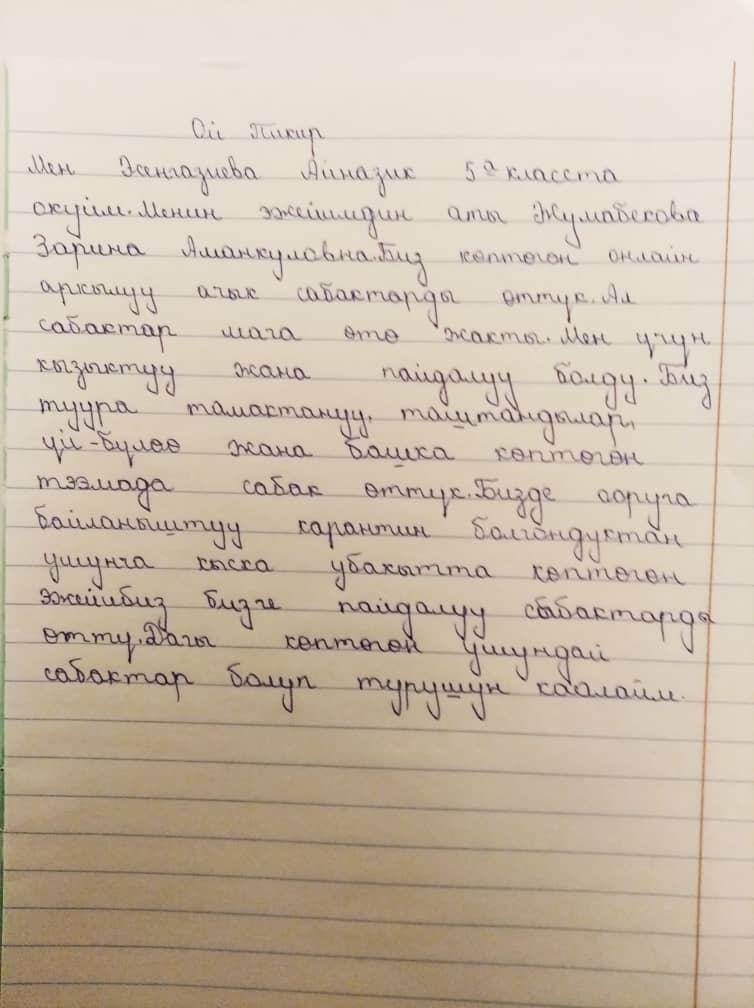 Ой Пикир
Мен Эсенгазиева Айназик 5ᵃ класста
окуйм. Менин эжейимдин аты Жумабекова
Зарина Аманкуловна. Биз көптөгөн онлайн
аркылуу ачык сабактарды өттүк. Ал
сабактар мага өтө жакты. Мен үчүн
кызыктуу жана пайдалуу болду. Биз
туура тамактануу, таштандылар,
үй-бүлөө жана башка көптөгөн
тээмада сабак өттүк. Бизде ооруга
байланыштуу карантин болгондуктан
ушунча кыска убакытта көптөгөн
эжейибиз бизге пайдалуу сабактарды
өттү. Дагы көптөгөн ушундай
сабактар болуп турушун каалайм.